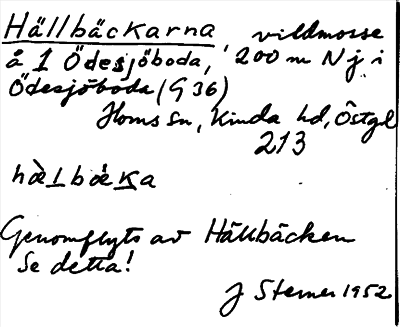 Hällbäckarna, vildmosse
å 1 Ödesjöboda, 200 m N j i
Ödesjöboda (G 36)
Horns sn, Kinda hd, Östgl
213
hæ̀lbáka
Genomflyts av Hällbäcken
Se detta!
J Sterner 1952